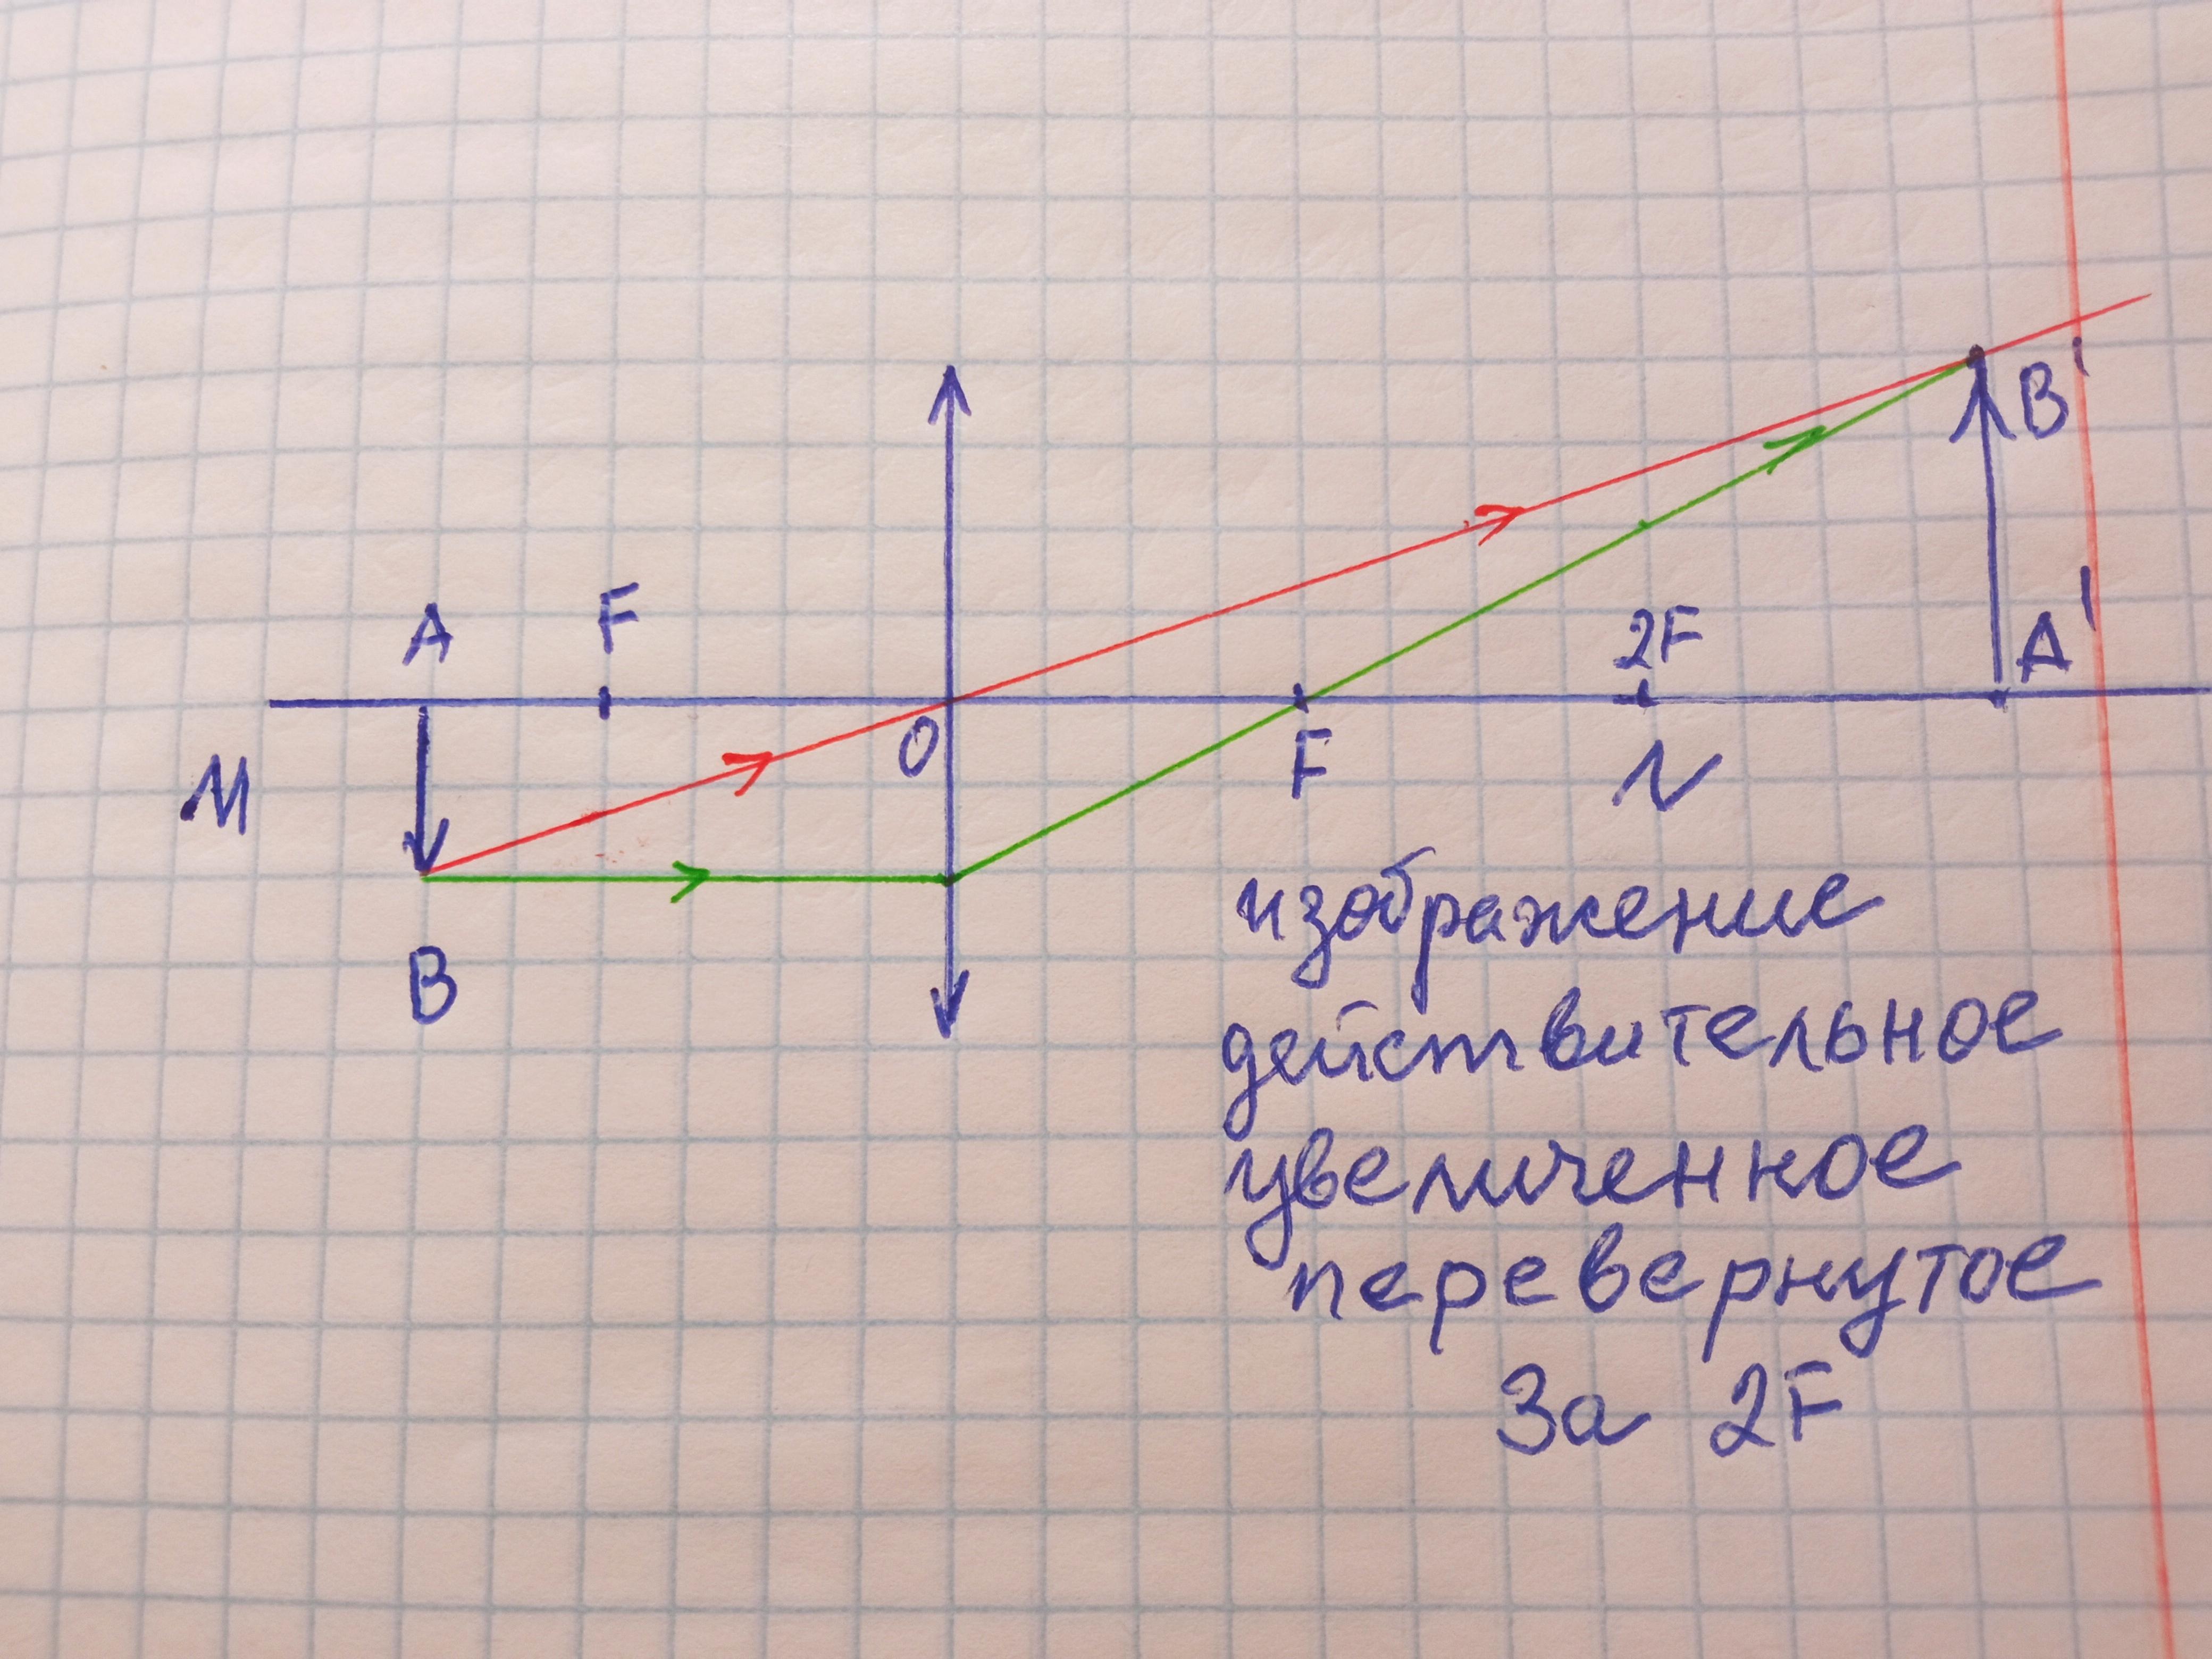 B'
A F 2F A'
M O F N
B
изображение
действительное
увеличенное
перевернутое
За 2F